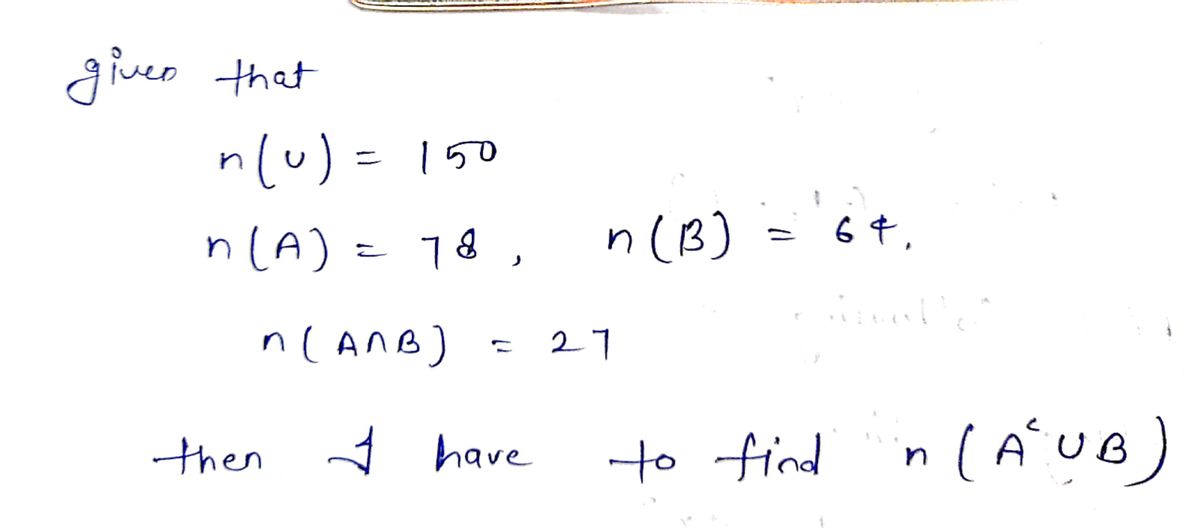 given that
n(U) = 150
n(A) = 78, n(B) = 64.
n(A∩B) = 27
then I have to find n(Aᶜ∪B)